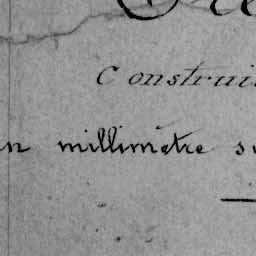 Construi
n millimètre su